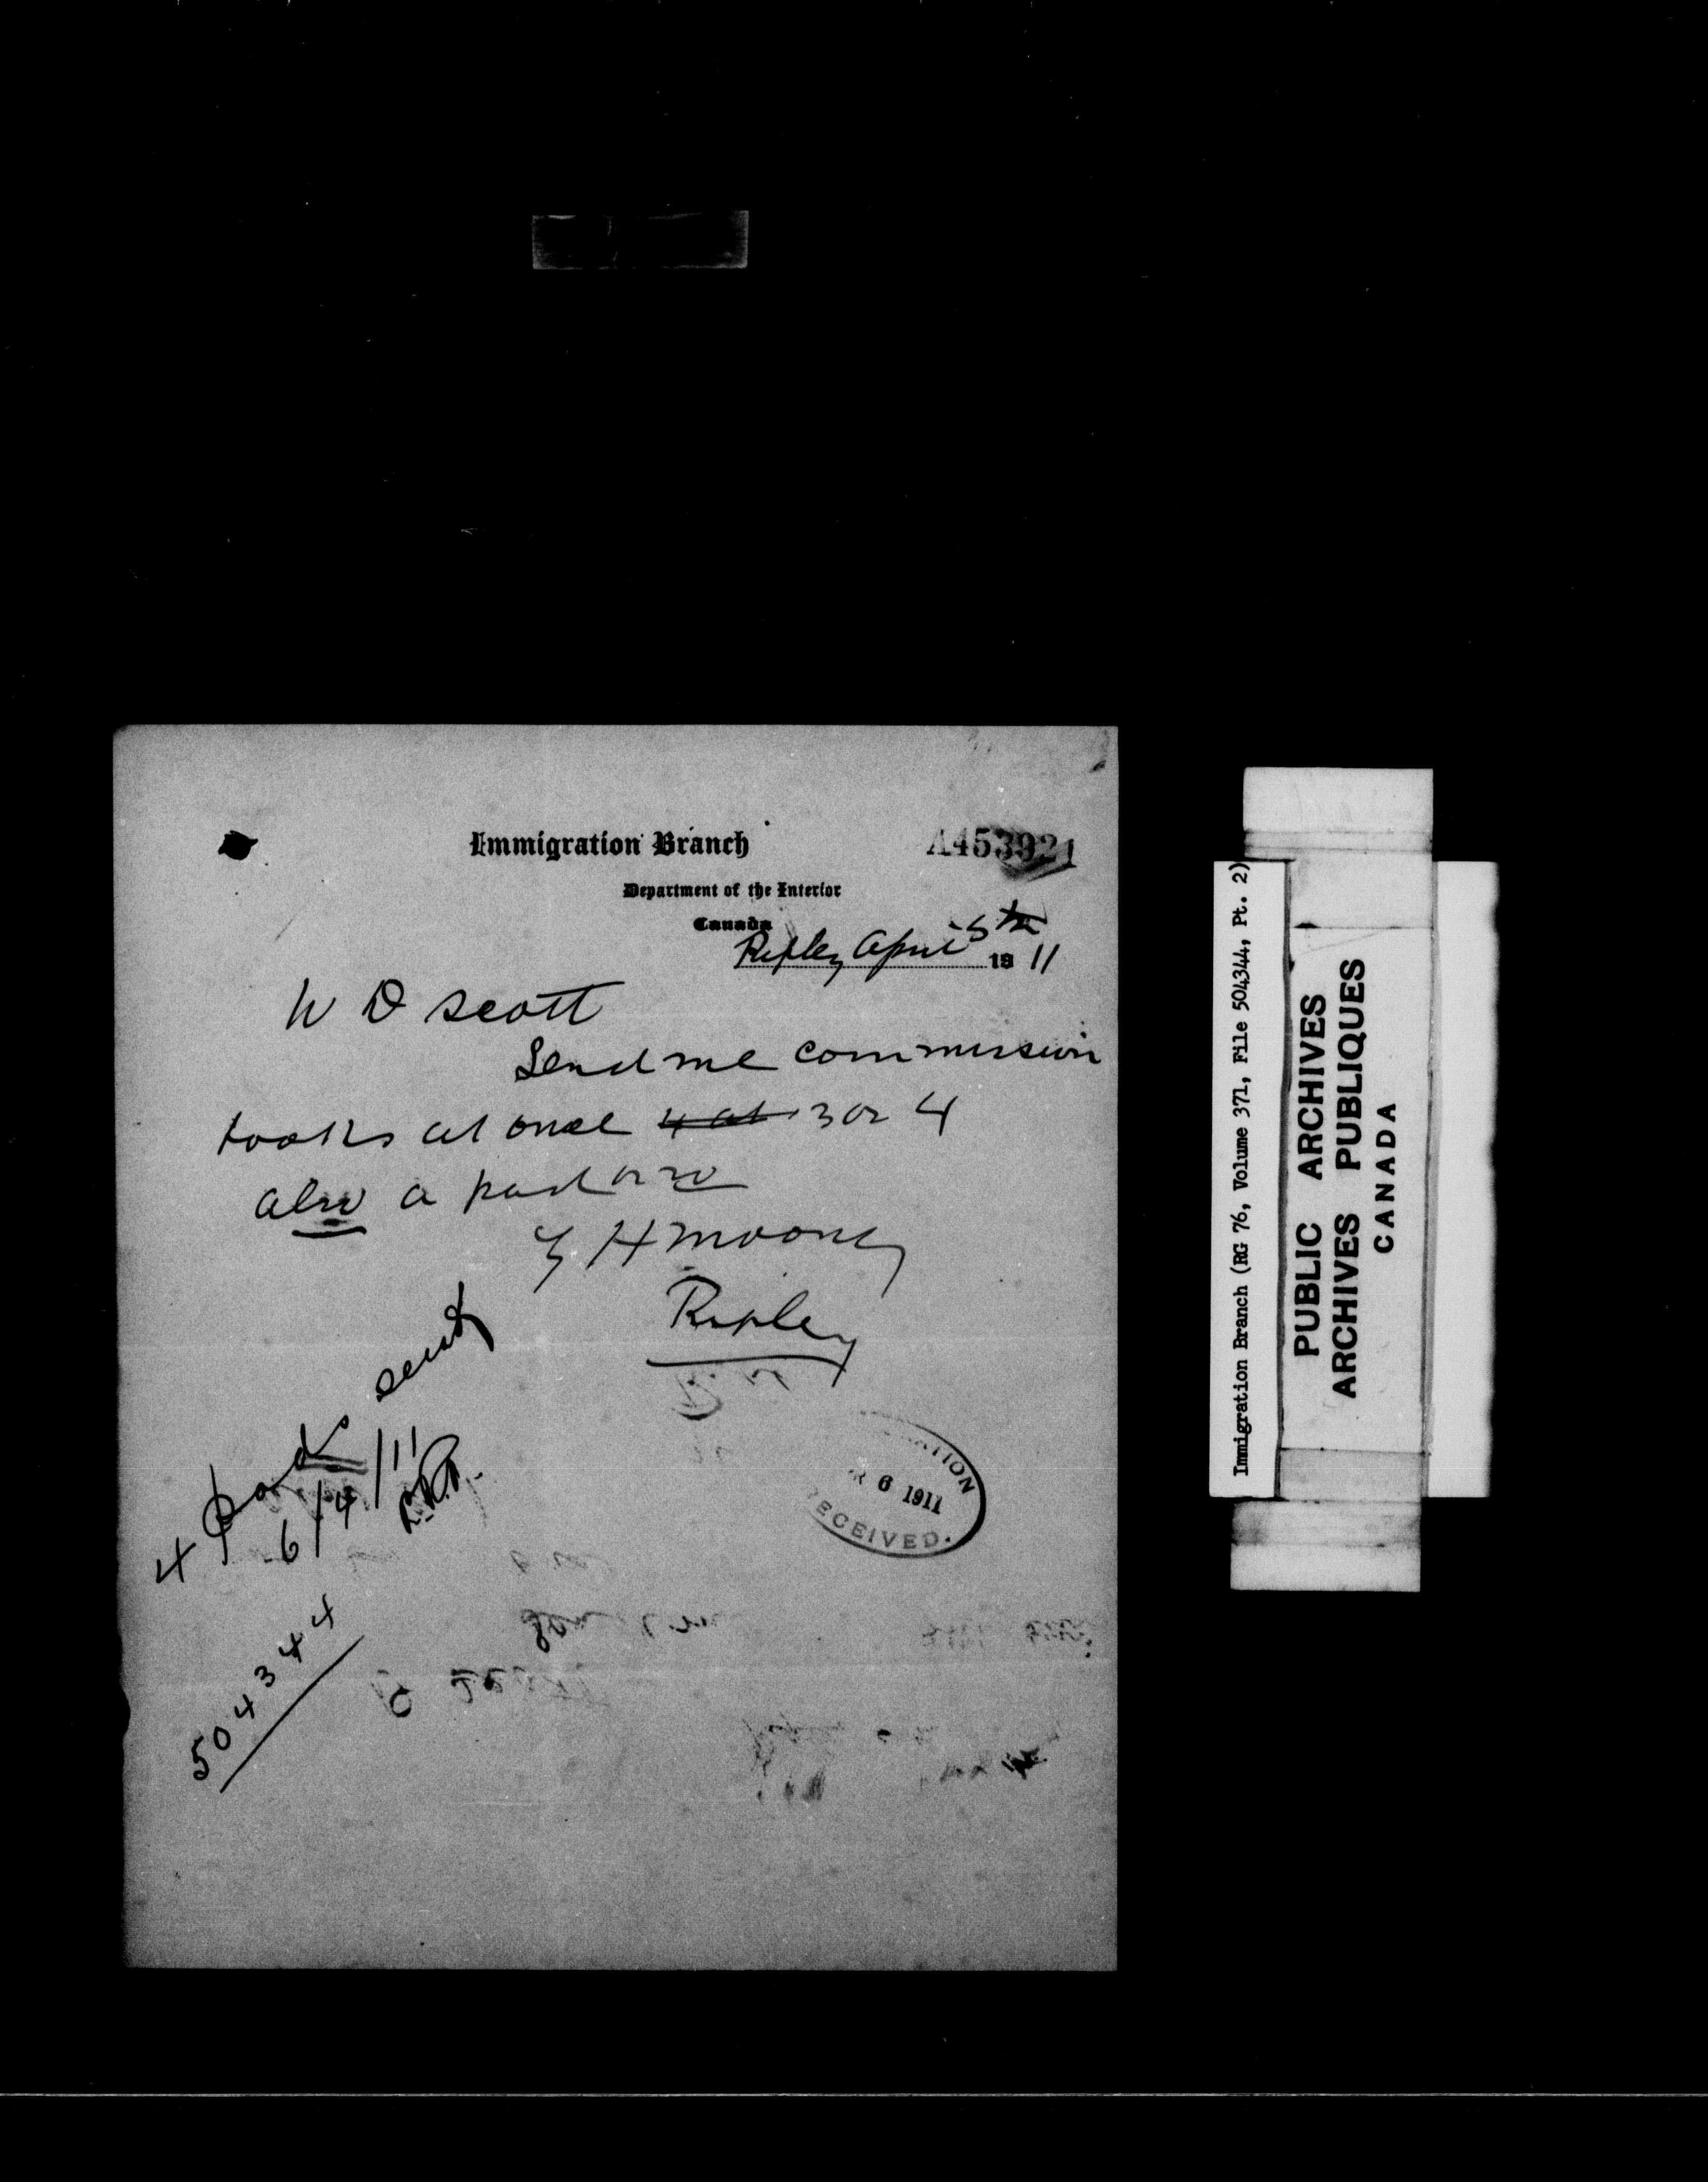 Immigration Branch
A453921
Department of the Interior
Canada
Ripley April 5th 1911
W D Scott
Send me commission
books at once 4 at 3 or 4
also a pad or so
H Mooney
Ripley
4 pads sent
6/4/11
504344
6 1911
RECEIVED.
Immigration Branch (RG 76, Volume 371, File 504344, Pt. 2)
PUBLIC ARCHIVES
ARCHIVES PUBLIQUES
CANADA